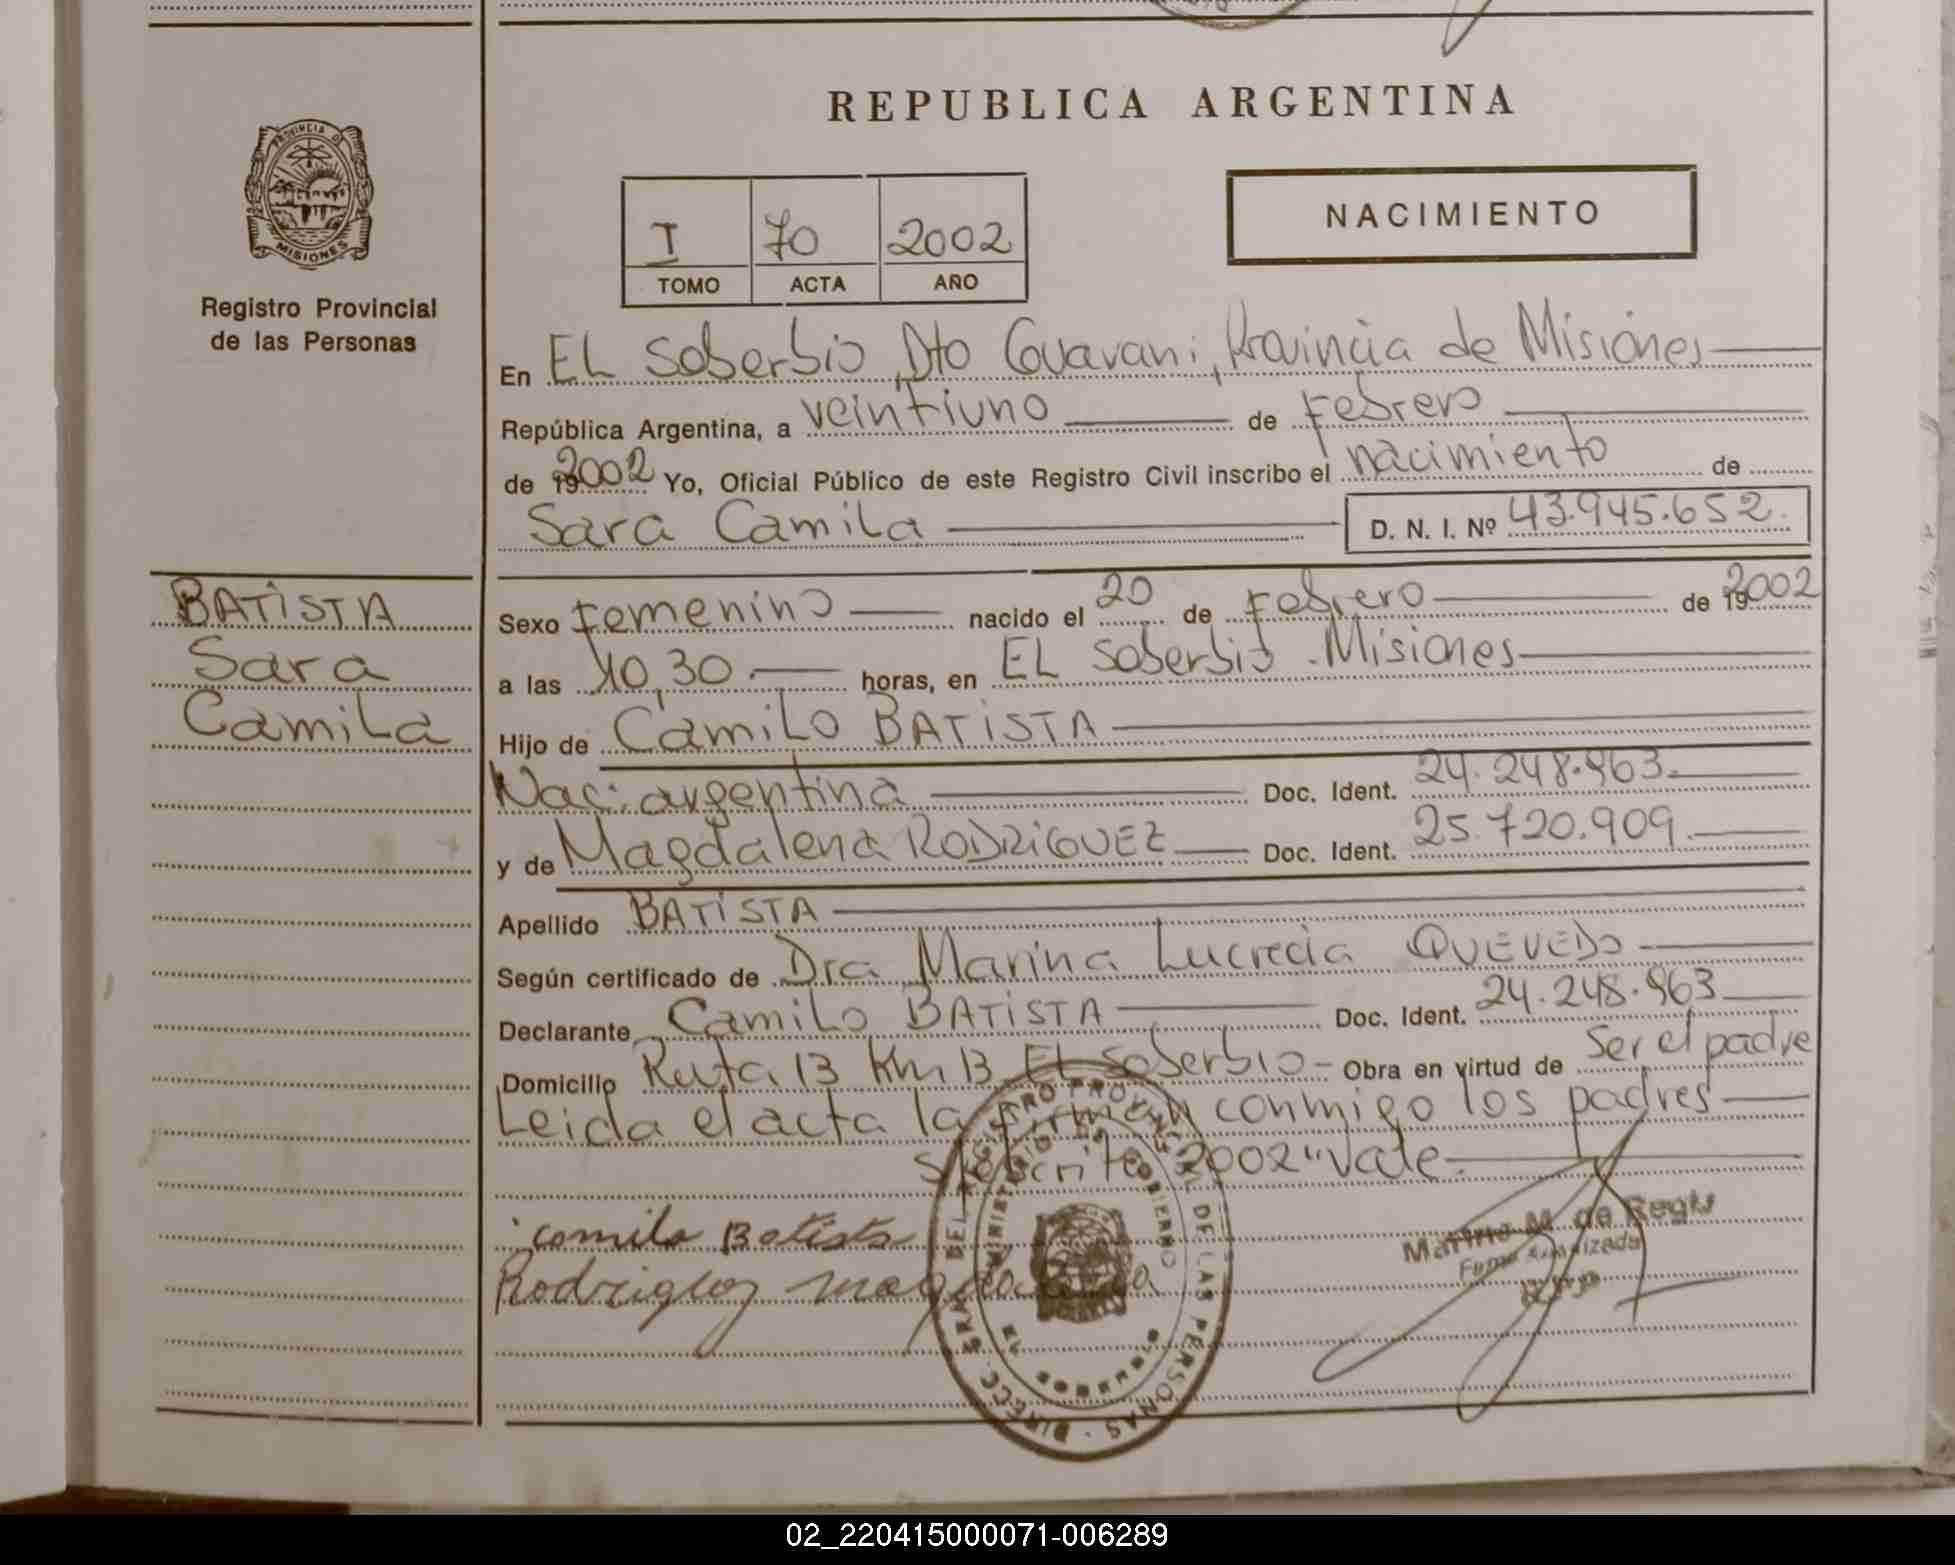 REPUBLICA ARGENTINA
PROVINCIA DE
MISIONES
Registro Provincial
de las Personas
I 70 2002
TOMO ACTA AÑO
NACIMIENTO
En EL Soberbio, Dto Guarani, Provincia de Misiones
República Argentina, a veintiuno de Febrero
de 2002 Yo, Oficial Público de este Registro Civil inscribo el nacimiento de
Sara Camila D. N. I. Nº 43.945.652.
BATISTA
Sara
Camila
Sexo Femenino nacido el 20 de Febrero de 2002
a las 10,30 horas, en EL Soberbio - Misiones
Hijo de Camilo BATISTA
Nac: argentina Doc. Ident. 24.248.963.
y de Magdalena RODRIGUEZ Doc. Ident. 25.720.909.
Apellido BATISTA
Según certificado de Dra Marina Lucrecia QUEVEDO
Declarante Camilo BATISTA Doc. Ident. 24.248.963
Domicilio Ruta 13 Km 13 El Soberbio - Obra en virtud de Ser el padre
Leida el acta la firman conmigo los padres
2002" Vale.
camilo Batista
Rodriguez magdalena
DIRECC. GRAL. DEL REGISTRO PROVINCIAL DE LAS PERSONAS
MINISTERIO DE GOBIERNO
EL SOBERBIO
Marina M. de Regis
02_220415000071-006289